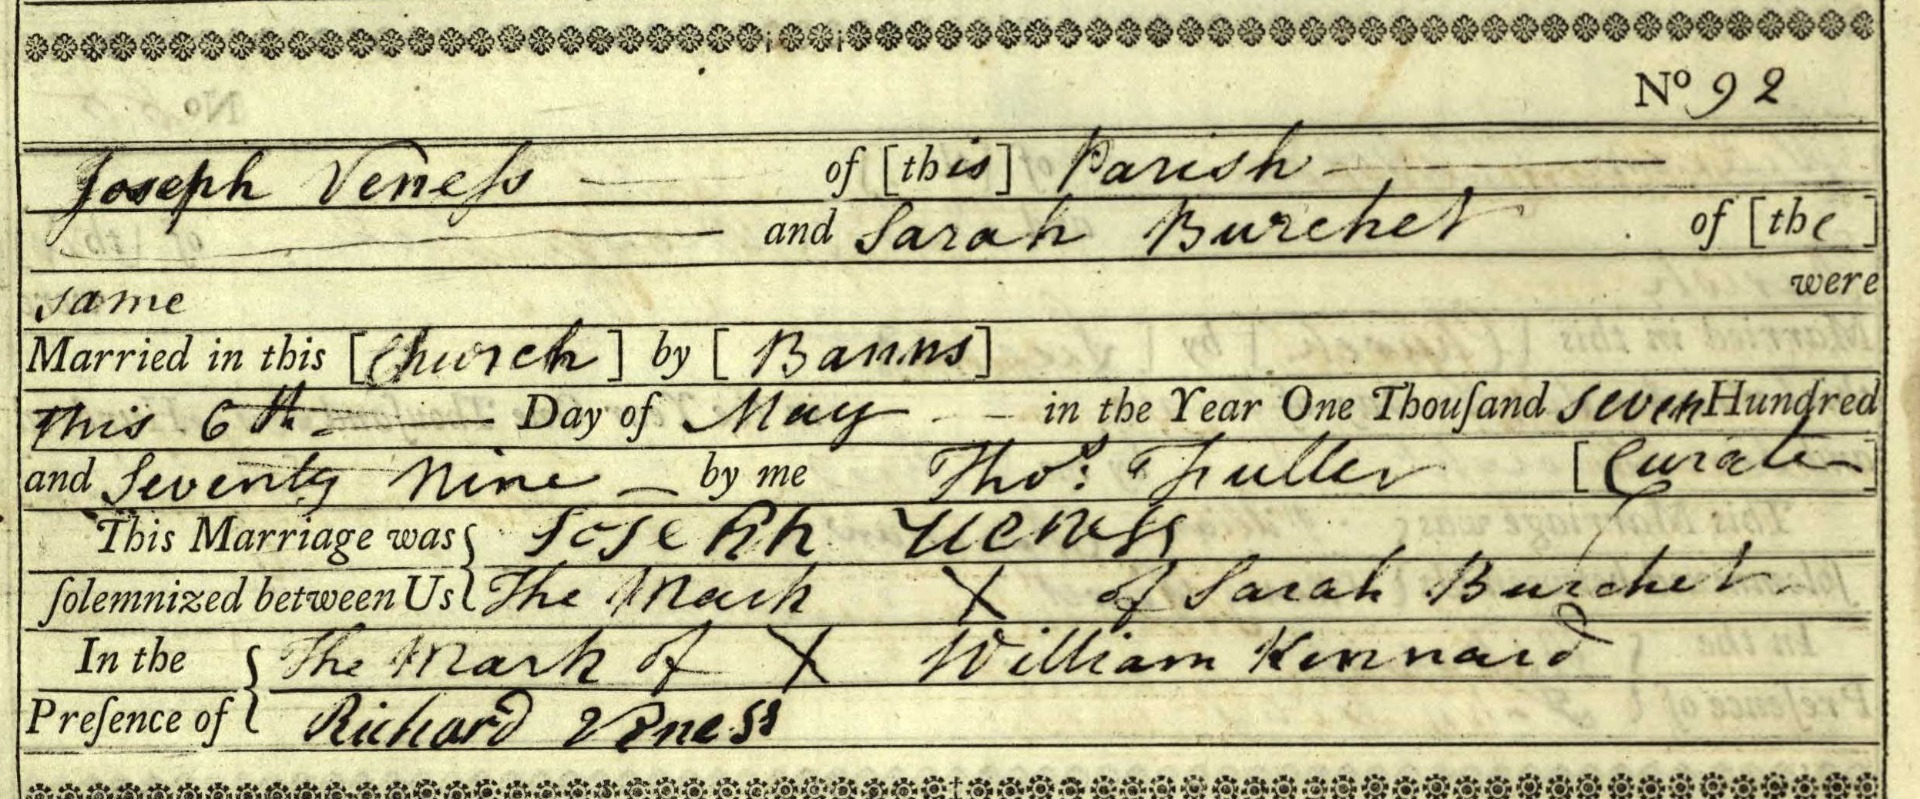 Nº 92
Joseph Veneſs of [this] Parish
and Sarah Burchet of [the]
same were
Married in this [Church] by [Banns]
this 6th Day of May in the Year One Thouſand seven Hundred
and Seventy Nine by me Thos: Fuller [Curate]
This Marriage was { Joseph Veness
ſolemnized between Us { The Mark X of Sarah Burchet
In the { The Mark of X William Kennard
Preſence of { Richard Veness